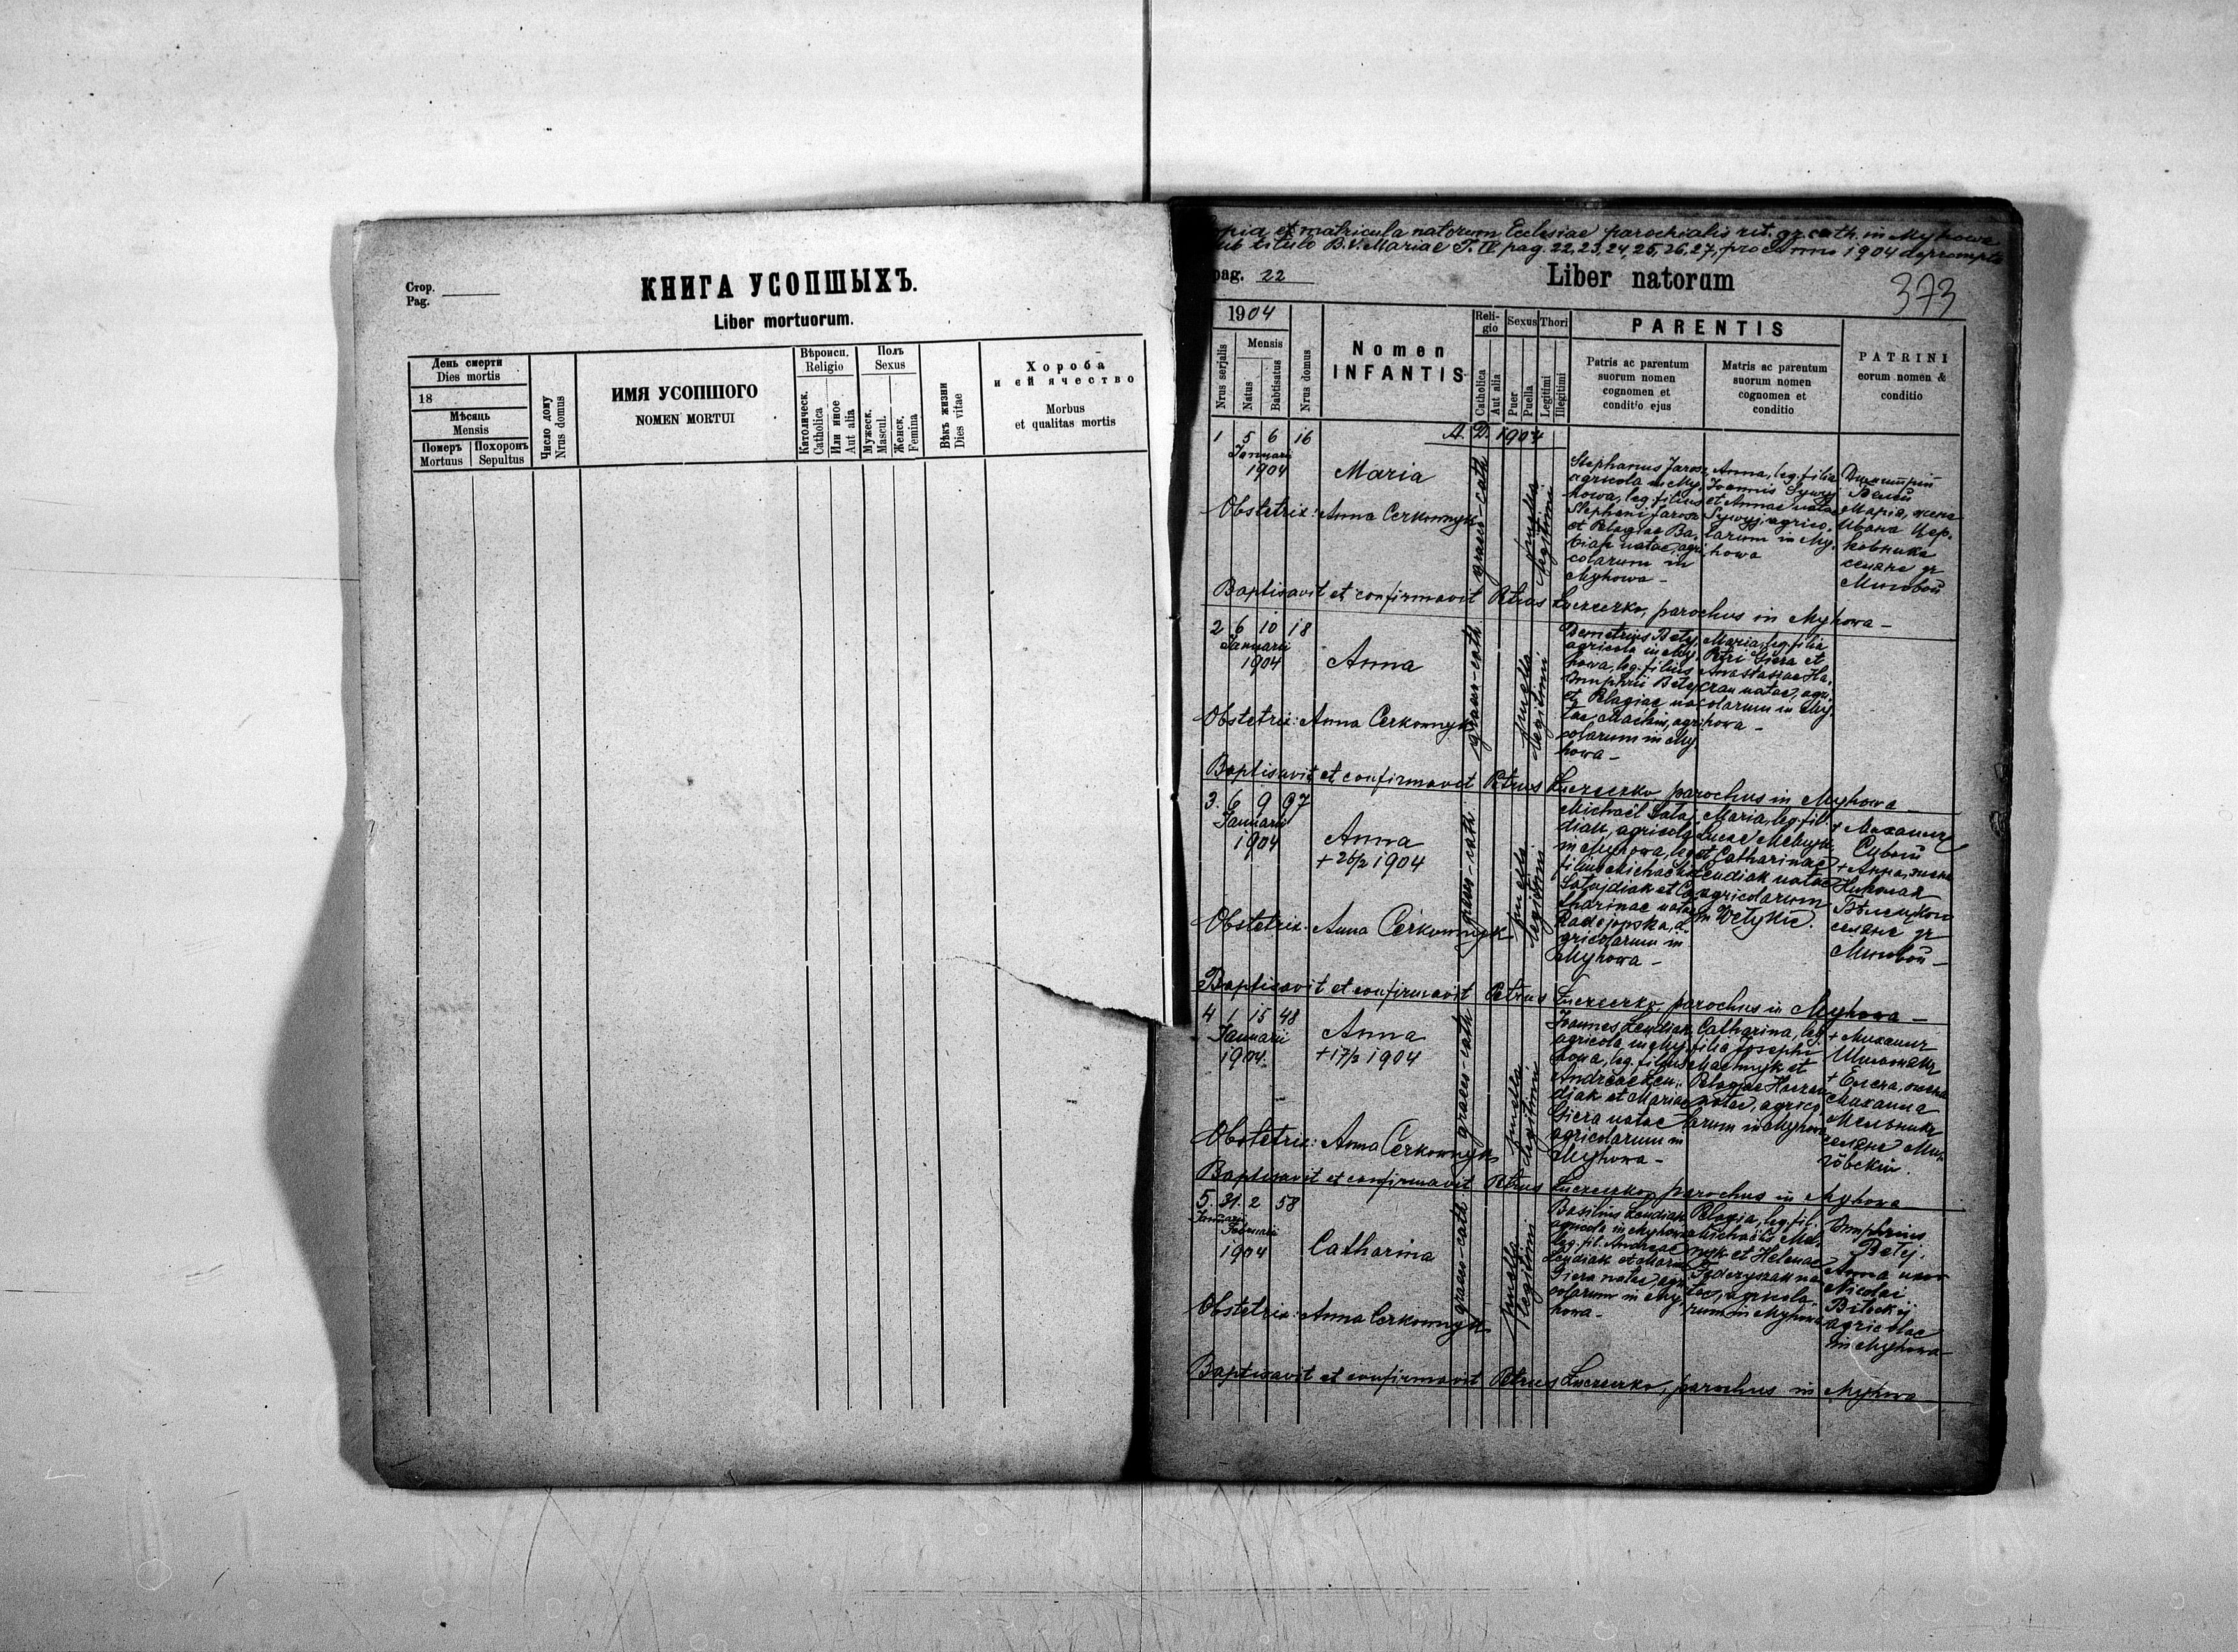 Стор.
Pag.
КНИГА УСОПШЫХЪ.
Liber mortuorum.
День смерти
Dies mortis
18
Мѣсяць
Mensis
Померъ Похоронъ
Mortuus Sepultus
Число дому
Nrus domus
ИМЯ УСОПШОГО
NOMEN MORTUI
Вѣроисп.
Religio
Католическ.
Catholica
Или иное
Aut alia
Полъ
Sexus
Мужеск.
Mascul.
Женск.
Femina
Вѣкъ жизни
Dies vitae
Хороба
и ей ячество
Morbus
et qualitas mortis
et matricula natorum Ecclesiae parochialis rit. gr. cath. in Myhowa
sub titulo B. V. Mariae T. IV pag. 22, 23, 24, 25, 26, 27, pro anno 1904 deprompta
pag. 22
Liber natorum
373
1904
Nrus serjalis
Mensis
Natus
Babtisatus
Nrus domus
Nomen
INFANTIS
Reli-
gio
Catholica
Aut alia
Sexus
Puer
Puella
Thori
Legitimi
Illegitimi
PARENTIS
Patris ac parentum
suorum nomen
cognomen et
conditio ejus
Matris ac parentum
suorum nomen
cognomen et
conditio
PATRINI
eorum nomen &
conditio
A. D. 1904
1 5 6 16
Januarii
1904
Maria
Obstetrix: Anna Cerkownyk
graeco-cath
puella
legitimi
Stephanus Jarosz
agricola in My-
howa, leg. filius
Stephani Jarosz
et Pelagiae Ba-
biak natae, agri-
colarum in
Myhowa -
Anna, leg. filia
Joannis Sywyj
et Annae natae
Sywyj, agrico-
larum in My-
howa
Димитрій
Велій
Марія, жена
Ивана Цер-
ковника
селяне зъ
Миговой
Baptisavit et confirmavit Petrus Luczeczko, parochus in Myhowa -
2 6 10 18
Januarii
1904
Anna
Obstetrix: Anna Cerkownyk
graeco-cath
puella
legitimi
Demetrius Bety
agricola in My-
howa, leg. filius
Onuphrii Bety
et Pelagiae na-
tae Machin, agri-
colarum in My-
howa -
Maria, leg. filia
Petri Giera et
Anastasiae Ha-
cran natae, agri-
colarum in My-
howa -
Baptisavit et confirmavit Petrus Luczeczko, parochus in Myhowa -
3. 6 9 97
Januarii
1904
Anna
+ 26/2 1904
Obstetrix: Anna Cerkownyk
graeco-cath
puella
legitimi
Michaël Łata-
diak, agricola
in Myhowa, leg.
filius Michaëlis
Łatajdiak et Ca-
tharinae natae
agricolarum in
Myhowa -
Maria, leg. fil.
Lucae Melnyk
et Catharinae
Lendiak natae
agricolarum
+ Михаилъ
Сивый
+ Анна, жена
Николая
селяне зъ
Миговой -
Baptisavit et confirmavit Petrus Luczeczko, parochus in Myhowa -
4 1 15 48
Januarii
1904.
Anna
+ 17/2 1904
Obstetrix: Anna Cerkownyk
graeco-cath
puella
legitimi
Joannes Lendiak
agricola in My-
howa, leg. filius
Andreae Len-
diak et Mariae
Giera natae
agricolarum in
Myhowa -
Catharina, leg.
filia Josephi
Machnyk et
Pelagiae
natae, agrico-
larum in Myhowa
+ Михаилъ
+ Елена, жена
Михаила
Мельника
селяне Ми-
говскій.
Baptisavit et confirmavit Petrus Luczeczko, parochus in Myhowa
5. 31. 2 58
Januarii
Februarii
1904
Catharina
Obstetrix: Anna Cerkownyk
graeco-cath
puella
legitimi
Basilius Lendiak
agricola in Myhowa
leg. fil. Andreae
Lendiak et Mariae
Giera natae, agri-
colarum in My-
howa -
Pelagia, leg. fil.
Michaëlis Mel-
nyk et Helenae
Fedczyszak na-
tae, agricola-
rum in Myhowa
Onuphrius
Betej.
Anna uxor
Nicolai
Bileckij
agricolae
in Myhowa -
Baptisavit et confirmavit Petrus Luczeczko, parochus in Myhowa